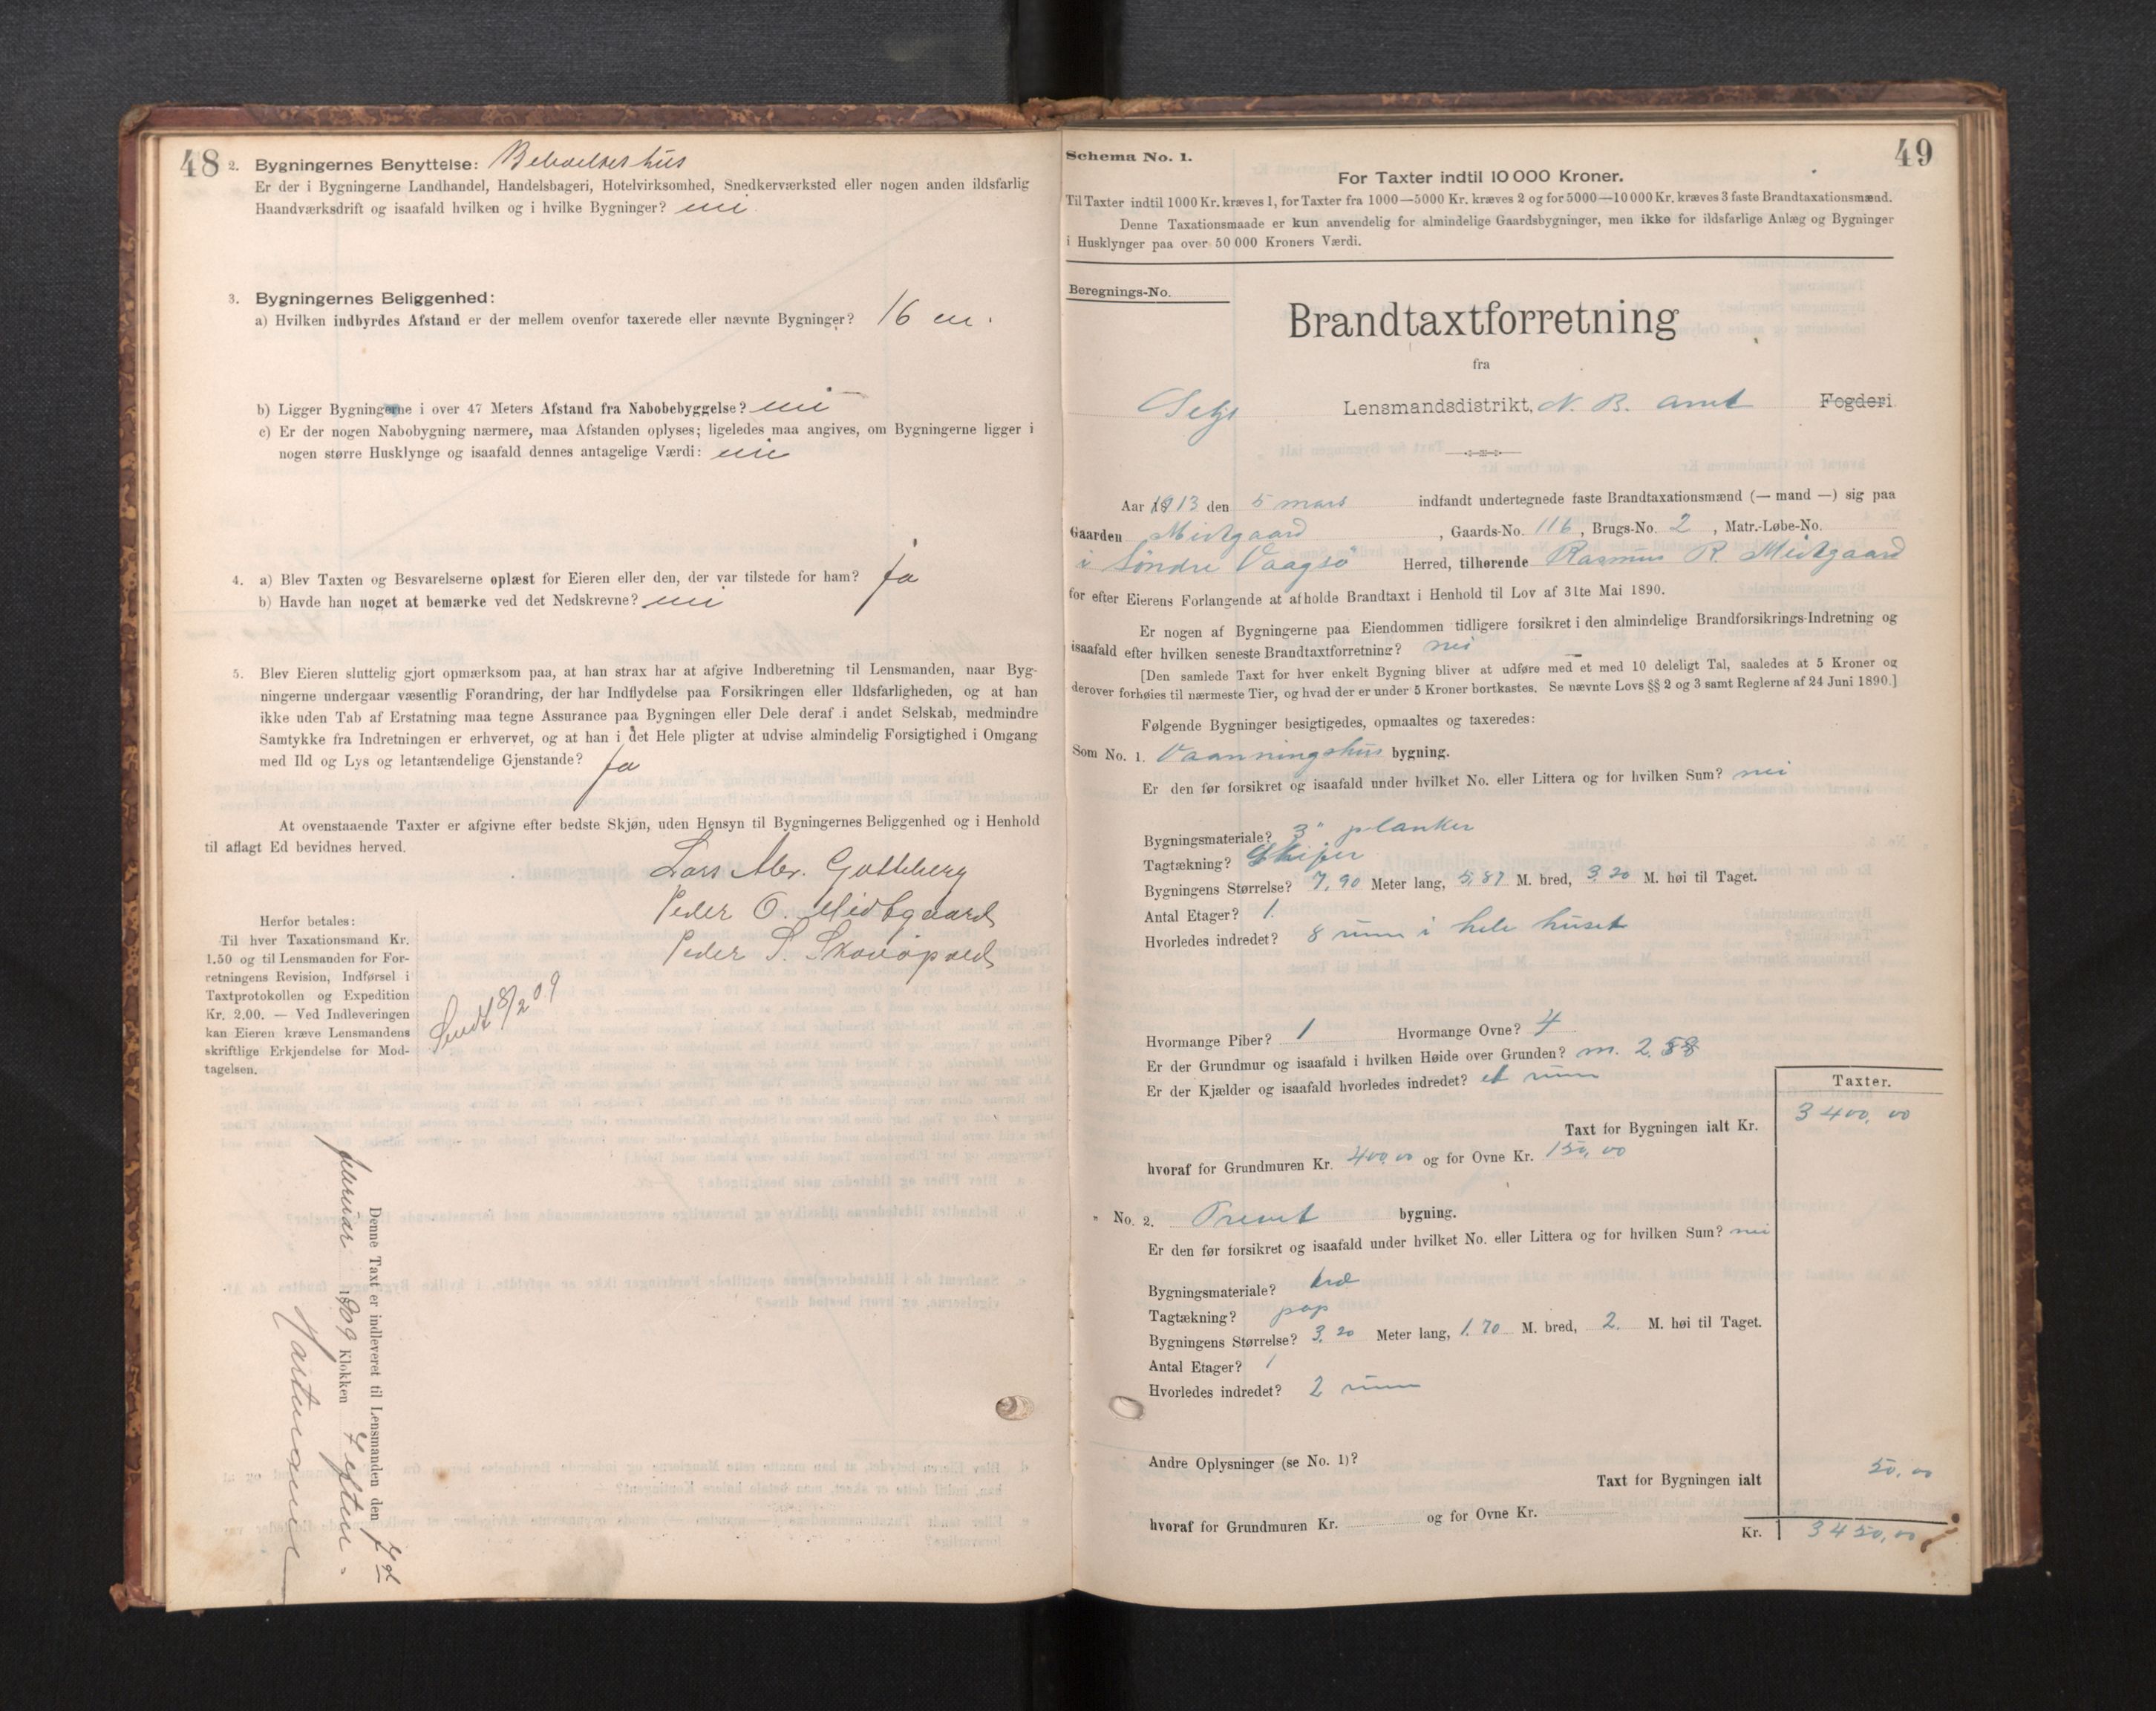 48
2. Bygningernes Benyttelse: Beboelseshus
Er der i Bygningerne Landhandel, Handelsbageri, Hotelvirksomhed, Snedkerværksted eller nogen anden ildsfarlig
Haandværksdrift og isaafald hvilken og i hvilke Bygninger? nei
3. Bygningernes Beliggenhed:
a) Hvilken indbyrdes Afstand er der mellem ovenfor taxerede eller nævnte Bygninger? 16 m.
b) Ligger Bygningerne i over 47 Meters Afstand fra Nabobebyggelse? nei
c) Er der nogen Nabobygning nærmere, maa Afstanden oplyses; ligeledes maa angives, om Bygningerne ligger i
nogen større Husklynge og isaafald dennes antagelige Værdi: nei
4. a) Blev Taxten og Besvarelserne oplæst for Eieren eller den, der var tilstede for ham? Ja
b) Havde han noget at bemærke ved det Nedskrevne? nei
5. Blev Eieren sluttelig gjort opmærksom paa, at han strax har at afgive Indberetning til Lensmanden, naar Byg-
ningerne undergaar væsentlig Forandring, der har Indflydelse paa Forsikringen eller Ildsfarligheden, og at han
ikke uden Tab af Erstatning maa tegne Assurance paa Bygningen eller Dele deraf i andet Selskab, medmindre
Samtykke fra Indretningen er erhvervet, og at han i det Hele pligter at udvise almindelig Forsigtighed i Omgang
med Ild og Lys og letantændelige Gjenstande? Ja
At ovenstaaende Taxter er afgivne efter bedste Skjøn, uden Hensyn til Bygningernes Beliggenhed og i Henhold
til aflagt Ed bevidnes herved.
Lars Alex. Gotteberg
Peder O. Midtgaard
Peder S.
Herfor betales:
Til hver Taxationsmand Kr.
1.50 og til Lensmanden for For-
retningens Revision, Indførsel i
Taxtprotokollen og Expedition
Kr. 2.00. — Ved Indleveringen
kan Eieren kræve Lensmandens
skriftlige Erkjendelse for Mod-
tagelsen.
Sendt 8/2 09
Denne Taxt er indleveret til Lensmanden den 7de
februar 1909 Klokken 7 eftm.
49
Schema No. 1.
For Taxter indtil 10 000 Kroner.
Til Taxter indtil 1000 Kr. kræves 1, for Taxter fra 1000—5000 Kr. kræves 2 og for 5000—10 000 Kr. kræves 3 faste Brandtaxationsmænd.
Denne Taxationsmaade er kun anvendelig for almindelige Gaardsbygninger, men ikke for ildsfarlige Anlæg og Bygninger
i Husklynger paa over 50 000 Kroners Værdi.
Beregnings-No.
Brandtaxtforretning
fra
Selje Lensmandsdistrikt, N. B. Amt Fogderi
Aar 1913 den 5 mars indfandt undertegnede faste Brandtaxationsmænd (— mand —) sig paa
Gaarden Midtgaard, Gaards-No. 116, Brugs-No. 2, Matr.-Løbe-No.
i Søndre Vaagsø Herred, tilhørende Rasmus R. Midtgaard
for efter Eierens Forlangende at afholde Brandtaxt i Henhold til Lov af 31te Mai 1890.
Er nogen af Bygningerne paa Eiendommen tidligere forsikret i den almindelige Brandforsikrings-Indretning og
isaafald efter hvilken seneste Brandtaxtforretning? nei
[Den samlede Taxt for hver enkelt Bygning bliver at udføre med et med 10 deleligt Tal, saaledes at 5 Kroner og
derover forhøies til nærmeste Tier, og hvad der er under 5 Kroner bortkastes. Se nævnte Lovs §§ 2 og 3 samt Reglerne af 24 Juni 1890.]
Følgende Bygninger besigtigedes, opmaaltes og taxeredes:
Som No. 1. Vaanningshus bygning.
Er den før forsikret og isaafald under hvilket No. eller Littera og for hvilken Sum? nei
Bygningsmateriale? 3" planker
Tagtækning? Skifer
Bygningens Størrelse? 7,90 Meter lang, 5,87 M. bred, 3,20 M. høi til Taget.
Antal Etager? 1.
Hvorledes indredet? 8 rum i hele huset
Hvormange Piber? 1 Hvormange Ovne? 4
Er der Grundmur og isaafald i hvilken Høide over Grunden? m. 2,58
Er der Kjælder og isaafald hvorledes indredet? et rum
Taxter.
Taxt for Bygningen ialt Kr. 3400,00
hvoraf for Grundmuren Kr. 400,00 og for Ovne Kr. 150,00
" No. 2. Privet bygning.
Er den før forsikret og isaafald under hvilket No. eller Littera og for hvilken Sum? nei
Bygningsmateriale? træ
Tagtækning? pap
Bygningens Størrelse? 3,20 Meter lang, 1,70 M. bred, 2. M. høi til Taget.
Antal Etager? 1
Hvorledes indredet? 2 rum
Andre Oplysninger (se No. 1)?
Taxt for Bygningen ialt 50,00
hvoraf for Grundmuren Kr. og for Ovne Kr.
Kr. 3450,00